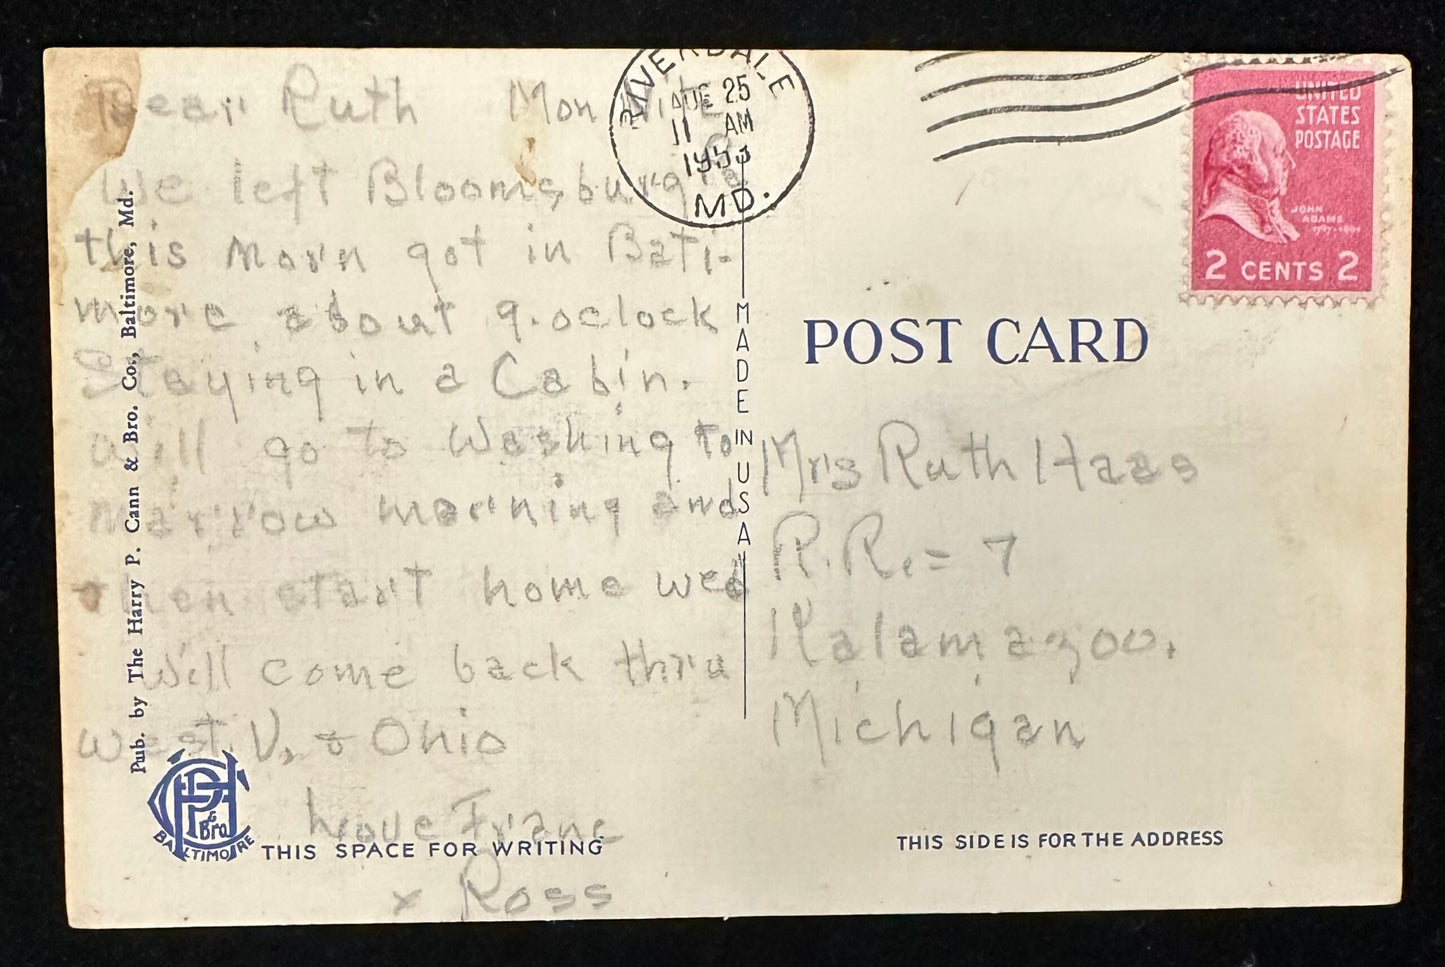 Dear Ruth Mon Nite
We left Bloomsburg Pa
this morn got in Balti-
more about 9.oclock
Staying in a Cabin.
Will go to Washing to
marrow morning and
then start home wed
Will come back thru
West. V. & Ohio
Love Franc
x Ross
Pub. by The Harry P. Cann & Bro. Co., Baltimore, Md.
HPC & Bro
BALTIMORE
THIS SPACE FOR WRITING
MADE IN USA
RIVERDALE
AUG 25
11 AM
1953
MD.
UNITED
STATES
POSTAGE
JOHN
ADAMS
1797-1801
2 CENTS 2
POST CARD
Mrs Ruth Haas
R.R. = 7
Kalamazoo.
Michigan
THIS SIDE IS FOR THE ADDRESS